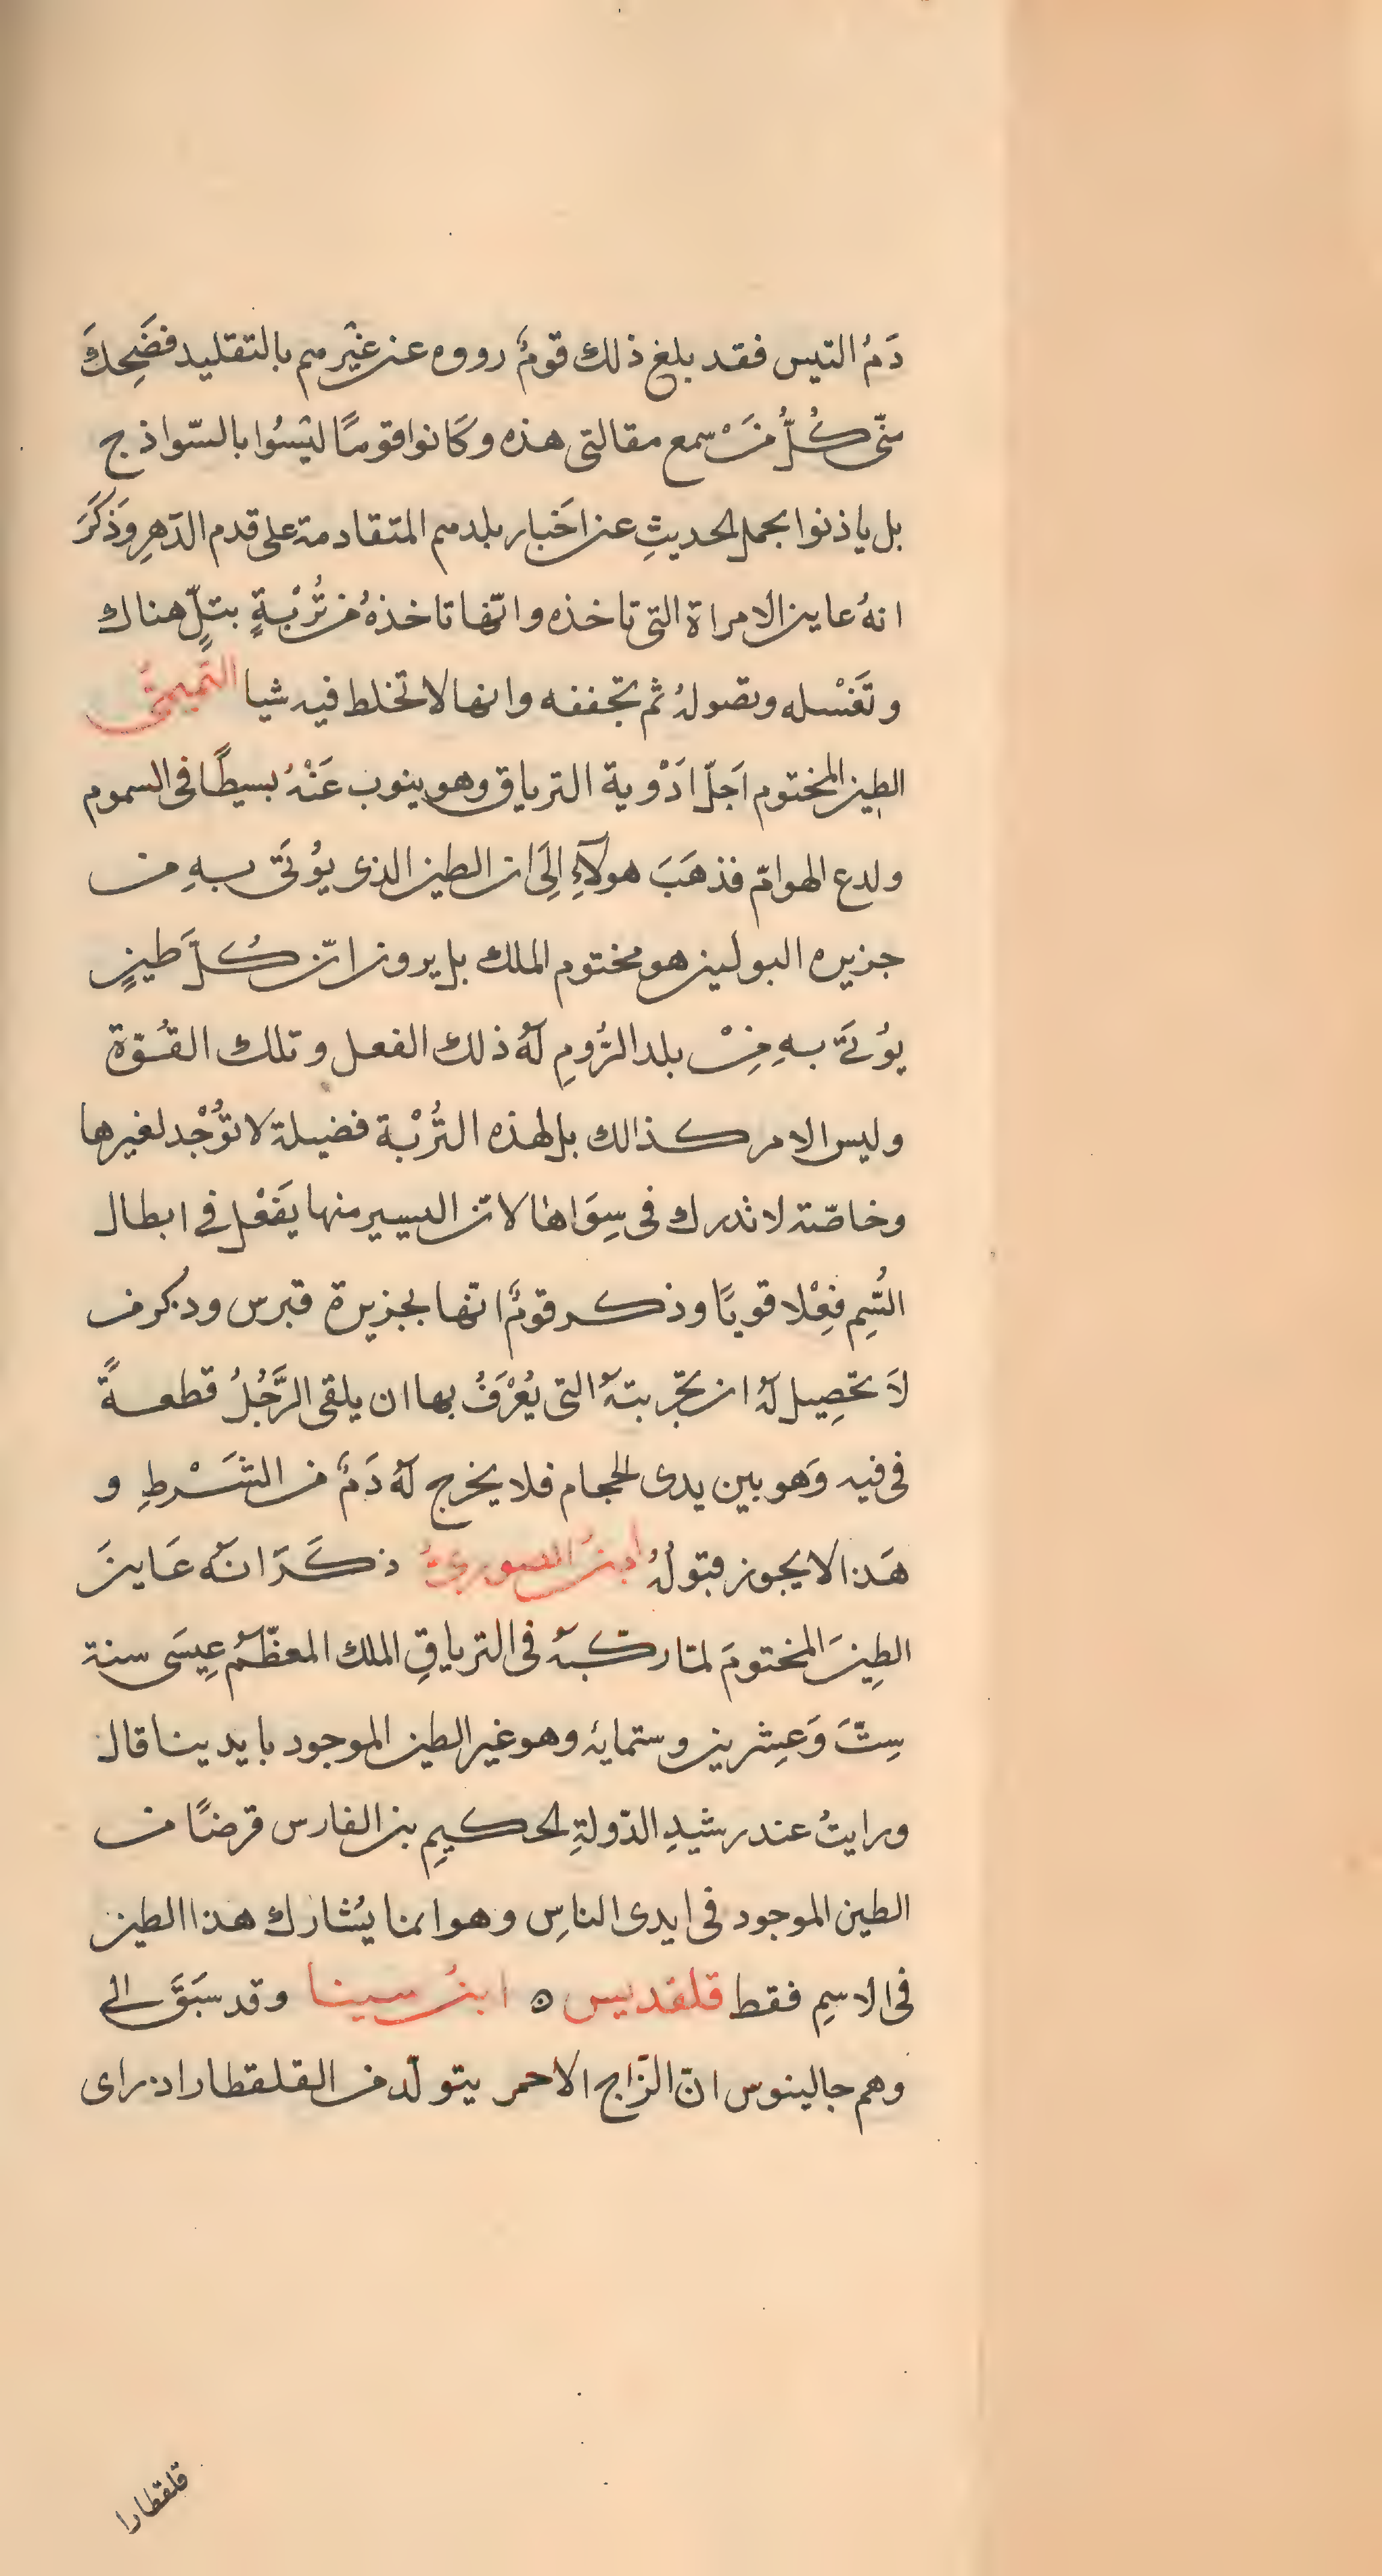 دَمُ التيس فقد بلغ ذلك قومٌ رووه عن غيْرهم بالتقليد فضَحِكَ
منّى كُلُّ مَنْ سمع مقالتى هذه وكَانوا قومًا ليْسُوا بالسّواذج
بل ياذنوا بجمل الحديثِ عن اخَبار بلدهم المتقادمة على قدم الدّهرِ وَذكَرَ
انهُ عاين الامراة التى تاخذه وانّها تاخذهُ من تُرْبةٍ بتلٍّ هناك
وتَغْسله وتصولهُ ثم تجففه وانها لا تخلط فيه شيا التميمىُّ
الطين المختوم اَجلّ ادَْوية الترياق وهو ينوب عَنْهُ بسيطًا فى السموم
ولدع الهوامّ فذهَبَ هولآءِ اِلَى ان الطين الذى يُوتَى بهِ من
جزيره البولين هو مختوم الملك بل يرون انّ كُلَّ طينٍ
يُوتَى بهِ مِنْ بلد الرُّومِ لهُ ذلك الفعل وتلك القُوّة
وليس الامر كذالك بل لهذه التُّرْبة فضيلة لا تُوْجْد لغيرها
وخاصّة لا تدرك فى سِوَاها لانّ اليسير منها يَفْعْل فى ابطال
السُّمِ فِعْلا قويًا وذكر قومٌ انّها بجزيرة قبرس ودكر من
لاَ تحَصِيل لهُ ان تجّربتهُ التى يُعْرَفُ بها ان يلقى الرَّجُلُ قطعةً
فى فيه وَهو بين يدى الحجام فلا يخرج لهُ دَمٌ من الشَّرطِ و
هَذا لا يجوز قبولُهُ ابنُ الصورىُّ ذكَرَ انهُ عَاينَ
الطِينَ المختومَ لمّا ركّبهُ فى الترياقِ الملك المعظّمُ عِيسَى سنة
سِتَّ وَعِشرين وستمايه وهو غير الطين الموجود بايدينا قال
ورايتُ عند رشيدِ الدّولةِ الحكيمِ بن الفارس قرضًا من
الطين الموجود فى ايدى الناسِ وهو انما يُشارك هذا الطين
فى الاسمِ فقط قلقديس ه ابنُ سينا وقد سبَقَ الى
وهم جالينوس انّ الزّاج الاحمر يتولّد من القلقطار اذ راى
قلقطارا